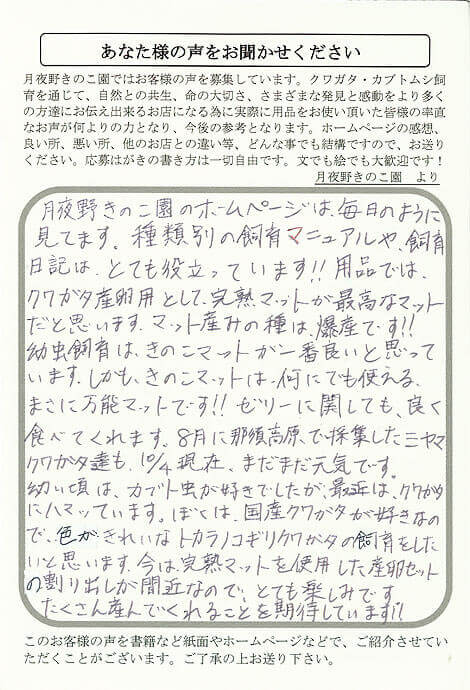 あなた様の声をお聞かせください
月夜野きのこ園ではお客様の声を募集しています。クワガタ・カブトムシ飼
育を通じて、自然との共生、命の大切さ、さまざまな発見と感動をより多く
の方達にお伝え出来るお店になる為に実際に用品をお使い頂いた皆様の率直
なお声が何よりの力となり、今後の参考となります。ホームページの感想、
良い所、悪い所、他のお店との違い等、どんな事でも結構ですので、お送り
ください。応募はがきの書き方は一切自由です。文でも絵でも大歓迎です！
月夜野きのこ園　より
月夜野きのこ園のホームページは、毎日のように
見てます。種類別の飼育マニュアルや、飼育
日記は、とても役立っています!!用品では、
クワガタ産卵用として、完熟マットが最高なマット
だと思います。マット産みの種は、爆産です!!
幼虫飼育は、きのこマットが一番良いと思って
います。しかも、きのこマットは、何にでも使える、
まさに万能マットです!!ゼリーに関しても、良く
食べてくれます。8月に那須高原で採集したミヤマ
クワガタ達も、10/4現在、まだまだ元気です。
幼い頃は、カブト虫が好きでしたが、最近は、クワガタ
にハマッています。ぼくは、国産クワガタが好きなの
で、色がきれいなトカラノコギリクワガタの飼育をした
いと思います。今は、完熟マットを使用した産卵セット
の割り出しが間近なので、とても楽しみです。
たくさん産んでくれることを期待しています!!
このお客様の声を書籍など紙面やホームページなどで、ご紹介させてい
ただくことがございます。ご了承の上お送り下さい。